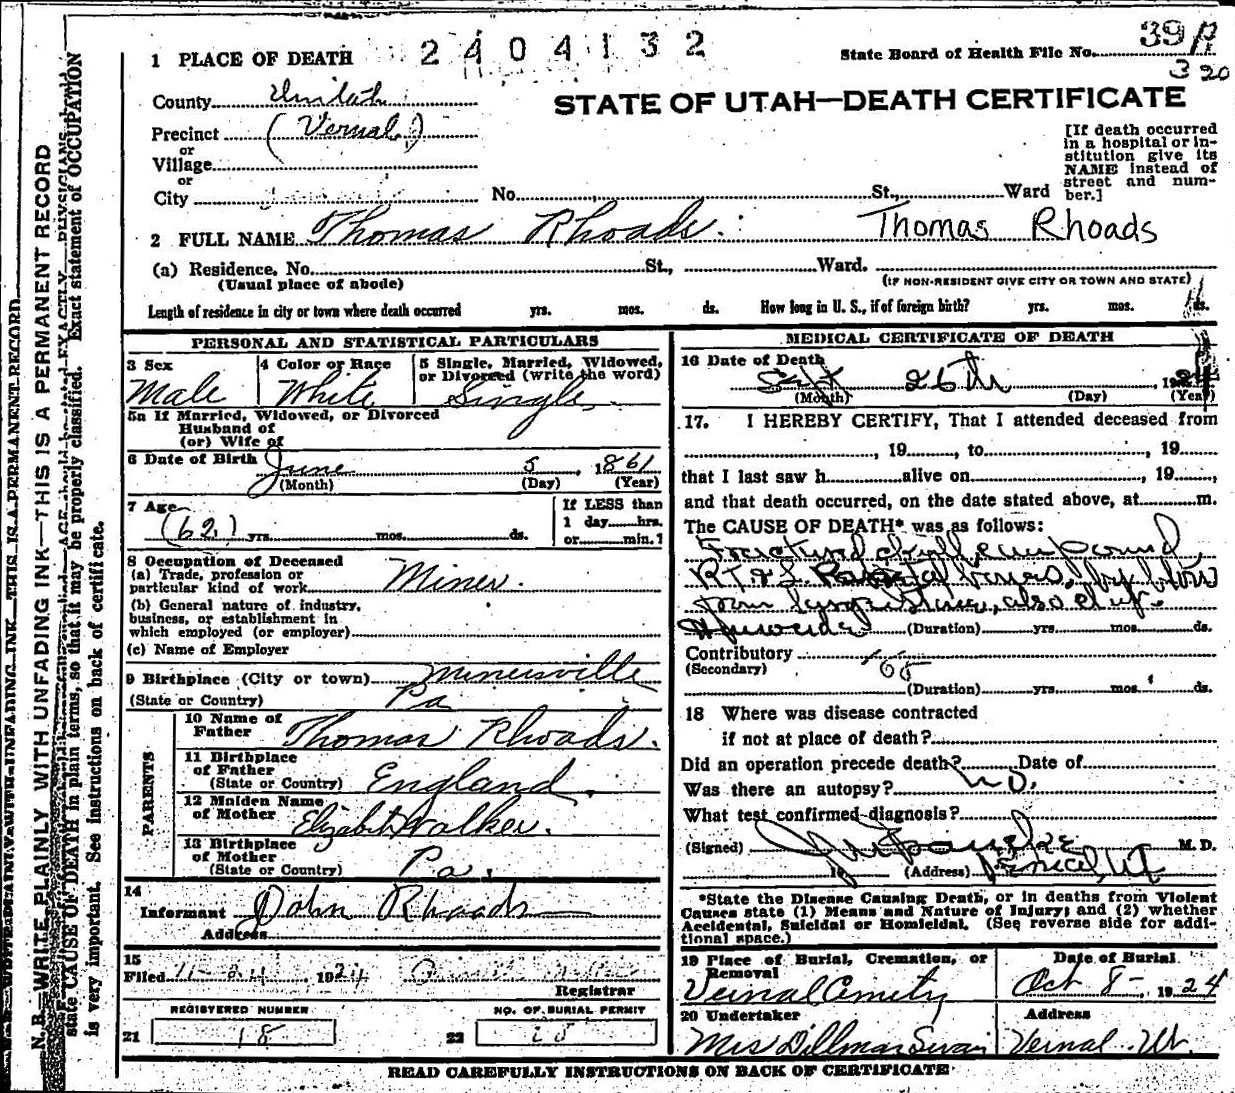 2404132
State Board of Health File No. 39
320
1 PLACE OF DEATH
STATE OF UTAH—DEATH CERTIFICATE
County Uintah
Precinct (Vernal)
or
Village
or
City
No. St., Ward
[If death occurred
in a hospital or in-
stitution give its
NAME instead of
street and num-
ber.]
2 FULL NAME Thomas Rhoads. Thomas Rhoads
(a) Residence, No. St., Ward.
(Usual place of abode) (IF NON-RESIDENT GIVE CITY OR TOWN AND STATE)
Length of residence in city or town where death occurred yrs. mos. ds. How long in U. S., if of foreign birth? yrs. mos. ds.
PERSONAL AND STATISTICAL PARTICULARS
3 Sex Male
4 Color or Race White
5 Single, Married, Widowed,
or Divorced (write the word)
Single
5a If Married, Widowed, or Divorced
Husband of
(or) Wife of
6 Date of Birth June 5, 1861
(Month) (Day) (Year)
7 Age (62) yrs. mos. ds.
If LESS than
1 day hrs.
or min.?
8 Occupation of Deceased
(a) Trade, profession or
particular kind of work Miner.
(b) General nature of industry,
business, or establishment in
which employed (or employer)
(c) Name of Employer
9 Birthplace (City or town) Minersville
(State or Country) Pa
PARENTS
10 Name of
Father Thomas Rhoads.
11 Birthplace
of Father
(State or Country) England.
12 Maiden Name
of Mother Elizabeth Walker.
13 Birthplace
of Mother
(State or Country) Pa.
14
Informant John Rhoads
Address
15
Filed 1924
Registrar
REGISTERED NUMBER
21 18
NO. OF BURIAL PERMIT
22
MEDICAL CERTIFICATE OF DEATH
16 Date of Death
Sept 26th, 192
(Month) (Day) (Year)
17. I HEREBY CERTIFY, That I attended deceased from
, 19 , to , 19
that I last saw h alive on , 19 ,
and that death occurred, on the date stated above, at m.
The CAUSE OF DEATH* was as follows:
Fractured skull compound
RT & L Parietal bones, by
also
(Duration) yrs. mos. ds.
Contributory
(Secondary) 165
(Duration) yrs. mos. ds.
18 Where was disease contracted
if not at place of death?
Did an operation precede death? Date of
Was there an autopsy? No.
What test confirmed diagnosis?
(Signed) M. D.
19 (Address) Vernal, Ut
*State the Disease Causing Death, or in deaths from Violent
Causes state (1) Means and Nature of Injury; and (2) whether
Accidental, Suicidal or Homicidal. (See reverse side for addi-
tional space.)
19 Place of Burial, Cremation, or
Removal
Vernal
Date of Burial
Oct 8-, 1924
20 Undertaker
Mrs Dillman Swain
Address
Vernal Ut.
READ CAREFULLY INSTRUCTIONS ON BACK OF CERTIFICATE
N. B.—WRITE PLAINLY WITH UNFADING INK—THIS IS A PERMANENT RECORD
state CAUSE OF DEATH in plain terms, so that it may be properly classified. Exact statement of OCCUPATION
is very important. See instructions on back of certificate.